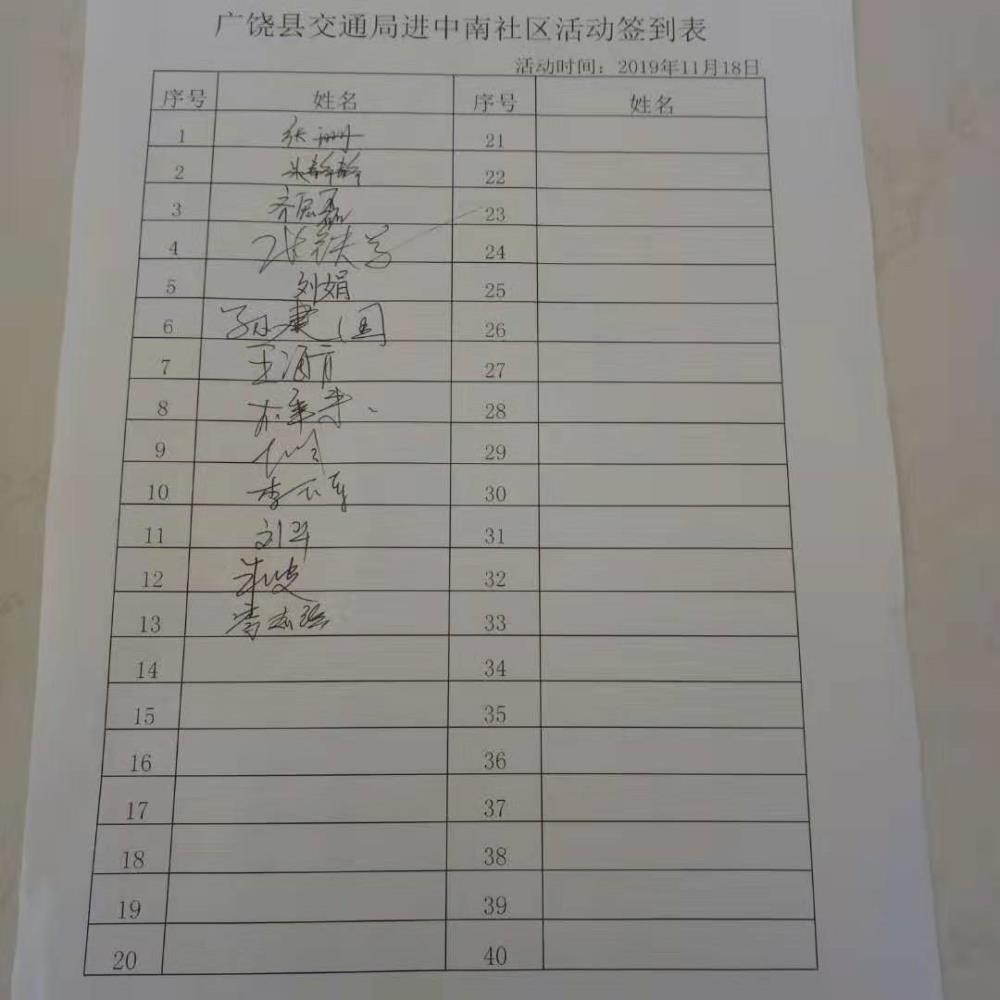 广饶县交通局进中南社区活动签到表
活动时间：2019年11月18日
序号 姓名 序号 姓名
1 张珊 21
2 22
3 23
4 张铁 24
5 刘娟 25
6 孙建国 26
7 王海 27
8 28
9 29
10 李 30
11 刘 31
12 32
13 33
14 34
15 35
16 36
17 37
18 38
19 39
20 40